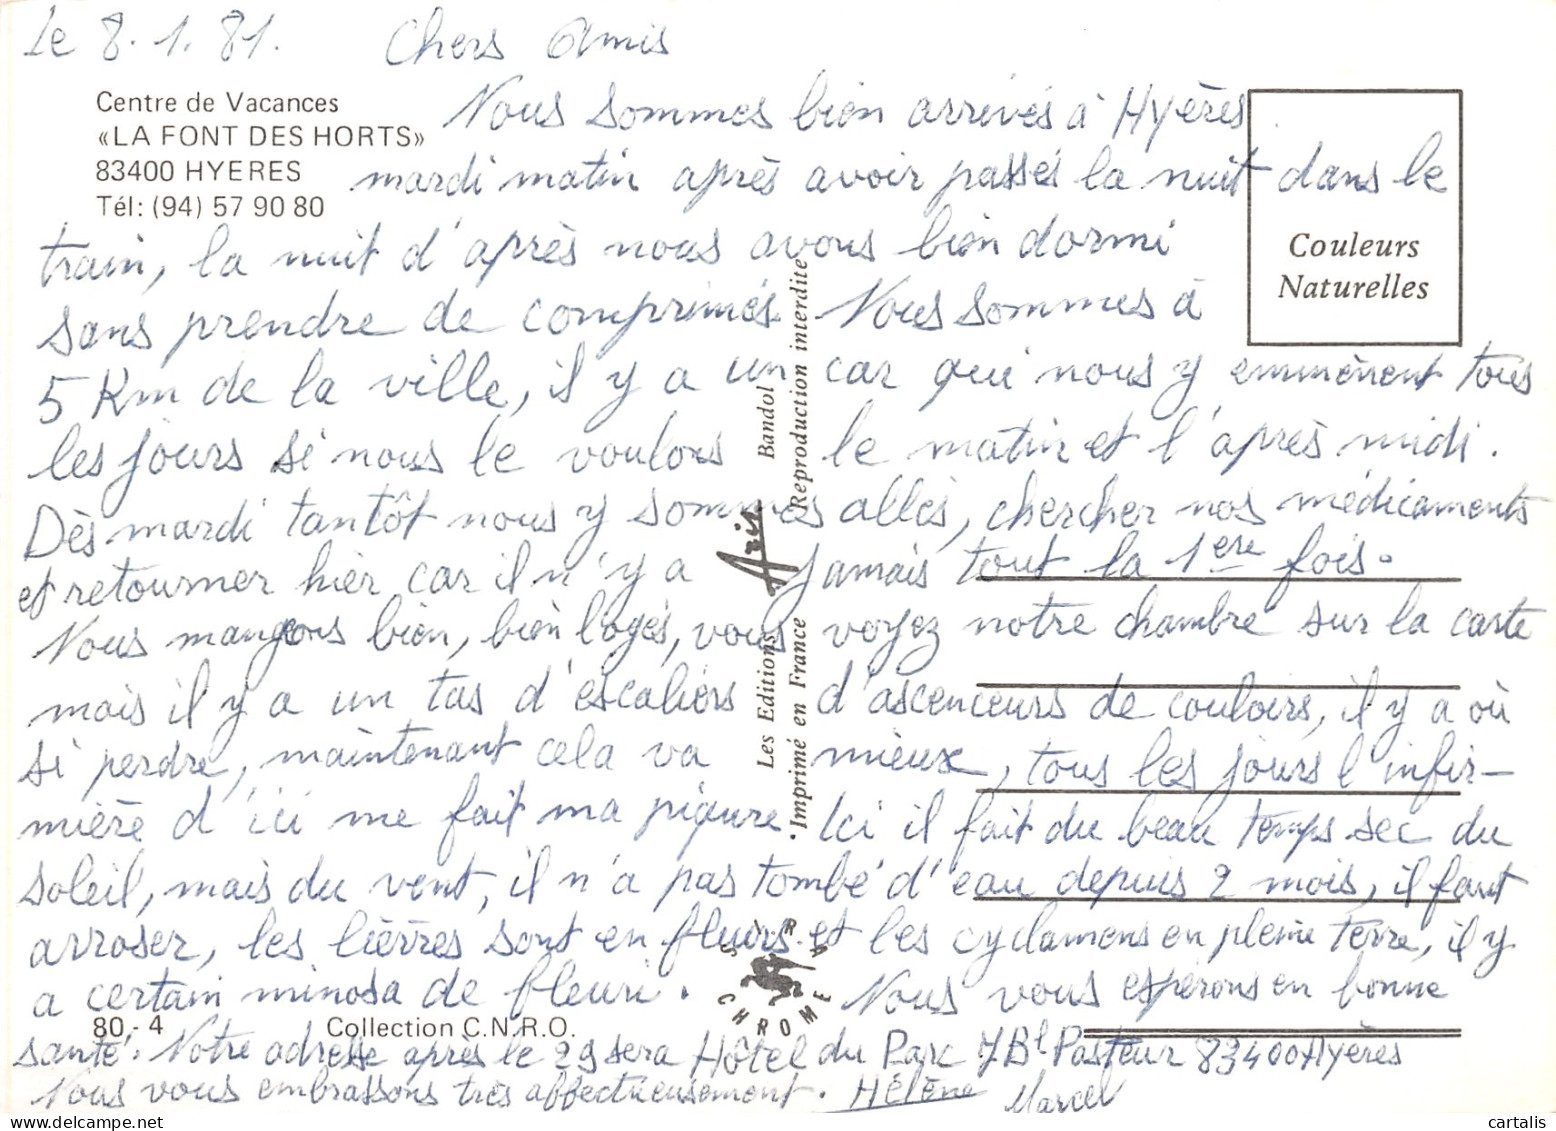 Le 8.1.81. Chers Amis
Centre de Vacances
«LA FONT DES HORTS»
83400 HYERES
Tél: (94) 57 90 80
Nous sommes bien arrivés à Hyères
mardi matin après avoir passés la nuit dans le
train, la nuit d'après nous avons bien dormi
sans prendre de comprimés. Nous sommes à
5 Km de la ville, il y a un car qui nous y emmènent tous
les jours si nous le voulons le matin et l'après midi.
Dès mardi tantôt nous y sommes allés, chercher nos médicaments
et retourner hier car il n'y a jamais tout la 1ere fois.
Nous mangeons bien, bien logés, vous voyez notre chambre sur la carte
mais il y a un tas d'escaliers d'ascenceurs de couloirs, il y a où
si perdre, maintenant cela va mieux, tous les jours l'infir-
mière d'ici me fait ma piqure. Ici il fait du beau temps sec du
soleil, mais du vent, il n'a pas tombé d'eau depuis 2 mois, il faut
arroser, les lières sont en fleurs et les cyclamens en pleine terre, il y
a certain minosa de fleuri. Nous vous espérons en bonne
santé. Notre adresse après le 29 sera Hôtel du Parc 7 Bl Pasteur 83400 Hyères
Nous vous embrassons très affectueusement. Hélène Marcel
Couleurs
Naturelles
Les Editions Aris Bandol
Imprimé en France Reproduction interdite
S.I.R.A
CHROME
80 - 4
Collection C.N.R.O.
cartalis